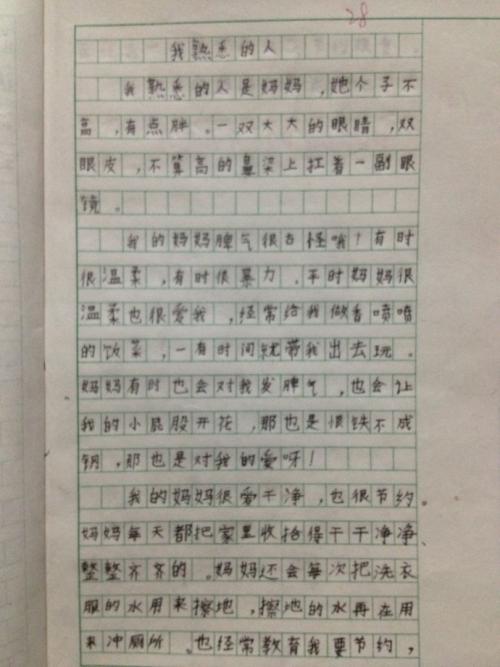 28
我熟悉的人
我熟悉的人是妈妈，她个子不
高，有点胖。一双大大的眼睛，双
眼皮，不算高的鼻梁上扛着一副眼
镜。
我的妈妈脾气很古怪哦！有时
很温柔，有时很暴力。平时妈妈很
温柔也很爱我，经常给我做香喷喷
的饭菜，一有时间就带我出去玩。
妈妈有时也会对我发脾气，也会让
我的小屁股开花，那也是恨铁不成
钢，那也是对我的爱呀！
我的妈妈很爱干净，也很节约。
妈妈每天都把家里收拾得干干净净、
整整齐齐的。妈妈还会每次把洗衣
服的水用来擦地，擦地的水再在用
来冲厕所。也经常教育我要节约，